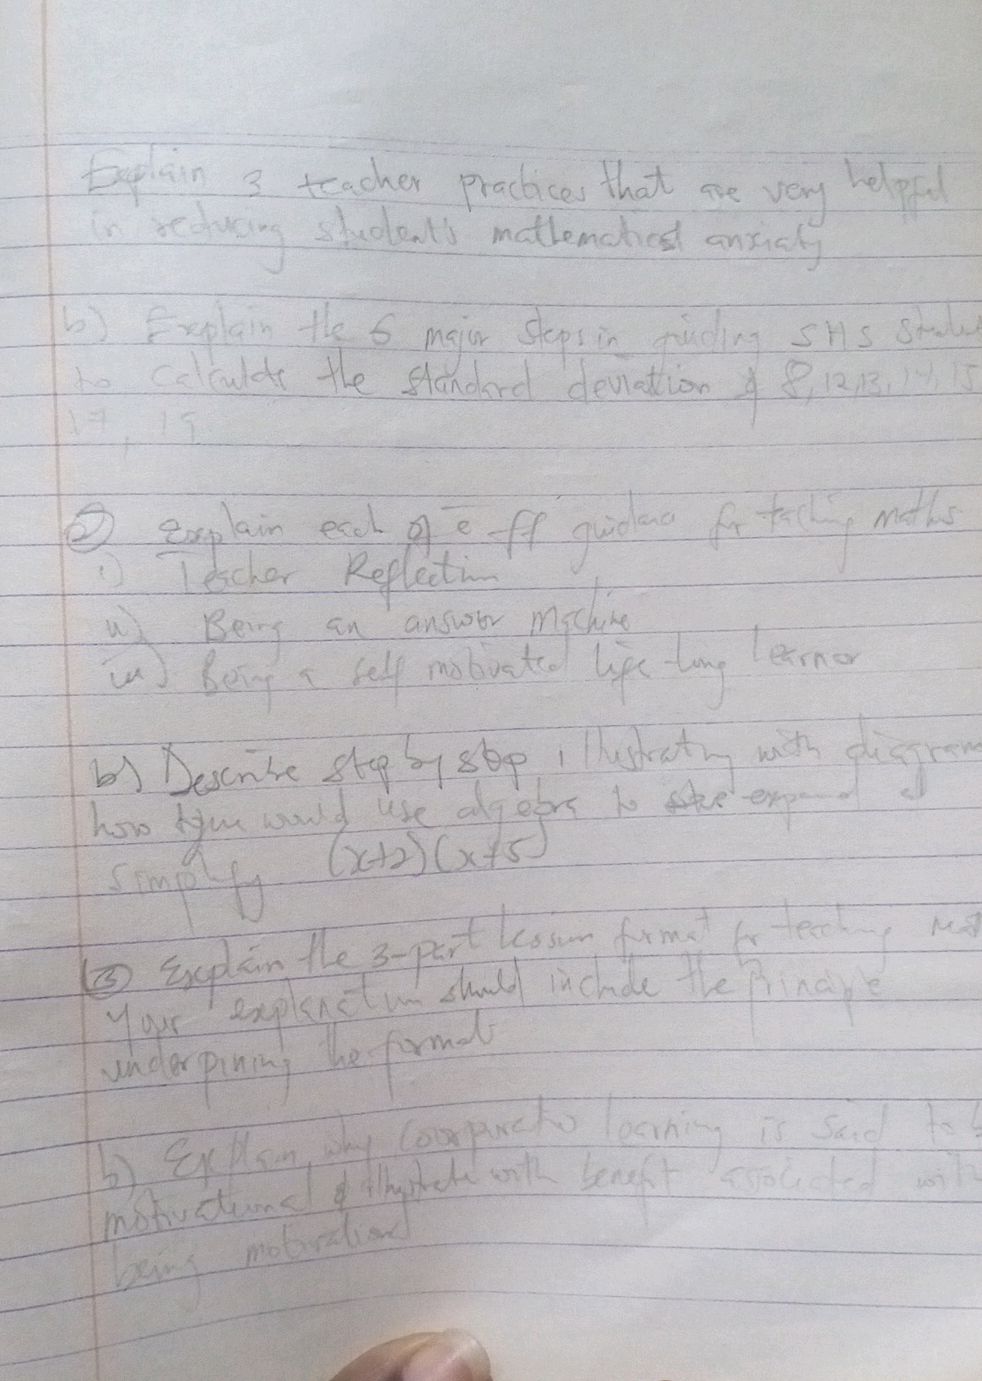 Explain 3 teacher practices that are very helpful
in reducing student's mathematical anxiaty
b) Explain the 5 major steps in guiding SHS Stude
to Calculate the standard deviation of 8, 12, 13, 14, 15
17, 19
② Explain each of ē ff guidance for teaching maths
i) Teacher Reflection
ii) Being an answer machine
iii) Being a self motivated life-long learner
b) Describe step by step illustrating with diagram
how you would use algebra to expand
Simplify (x+2)(x+5)
③ Explain the 3-part lesson format for teaching
Your explanation should include the principle
underpining the format
b) Explain why learning is said to b
motivational & illustrate with benefit associated with
being motivational